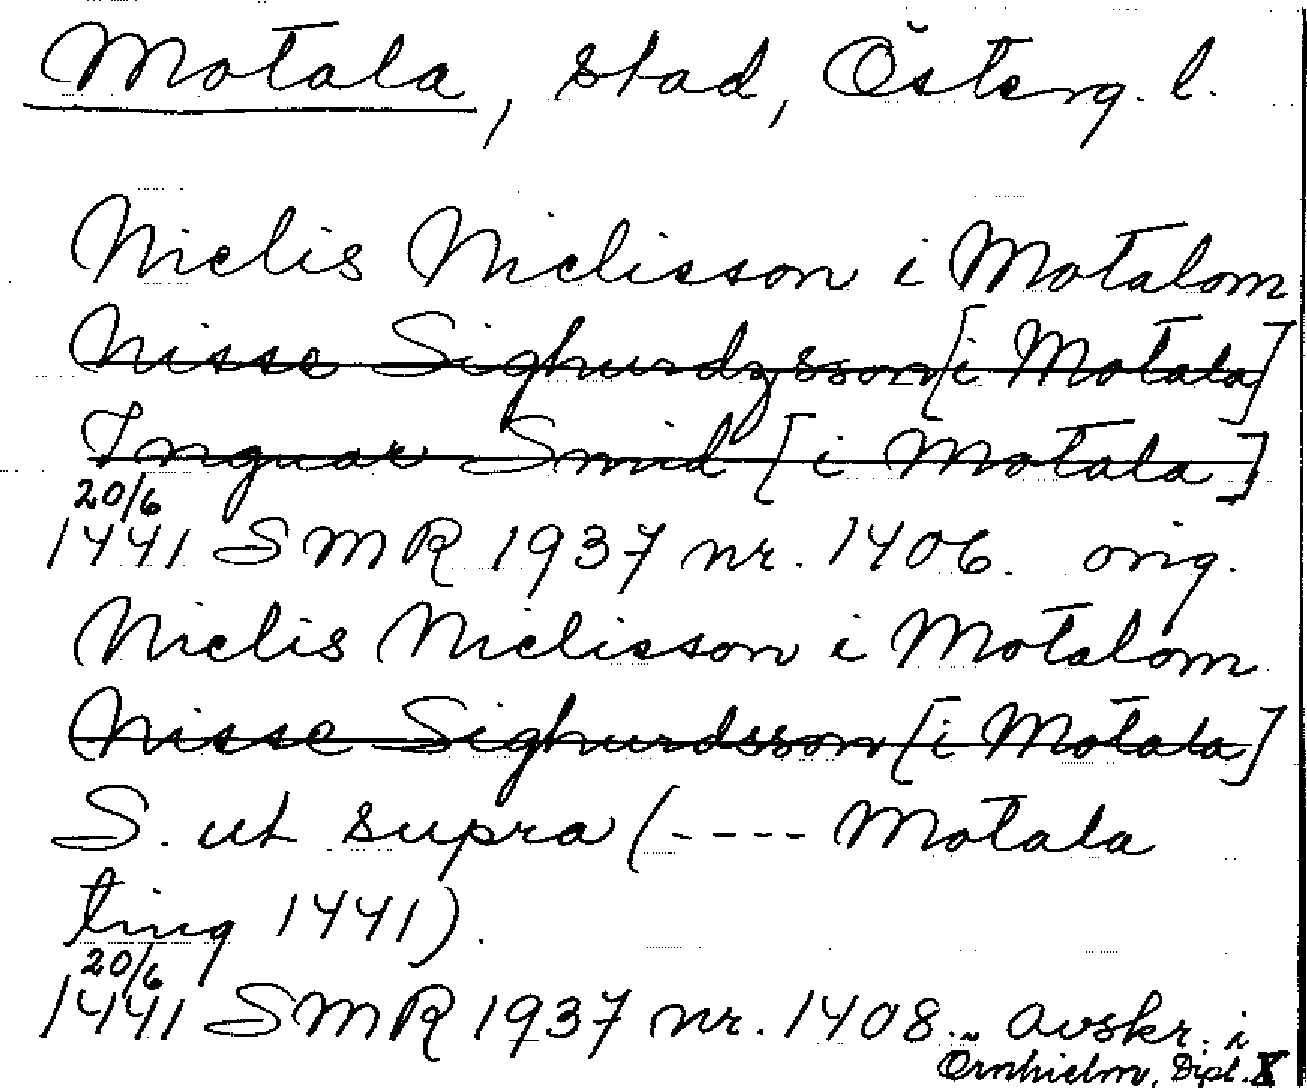 Motala, stad, Österg. l.
Niclis Niclisson i Motalom
Nisse Sighurdzsson [i Motala]
Inguar Smid [i Motala]
20/6
1441 SMR 1937 nr. 1406. orig.
Niclis Niclisson i Motalom
Nisse Sighurdsson [i Motala]
S. ut supra (---- Motala
ting 1441).
20/6
1441 SMR 1937 nr. 1408. avskr. i
Örnhielm, Dipl. X